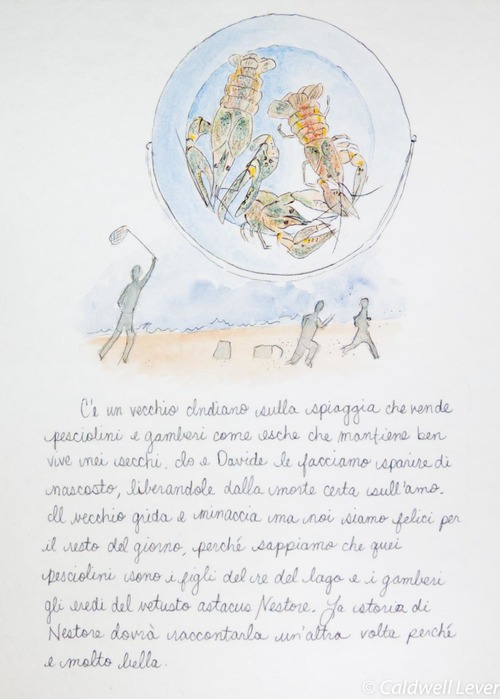 C'è un vecchio Indiano sulla spiaggia che vende
pesciolini e gamberi come esche che mantiene ben
vive nei secchi. Io e Davide le facciamo sparire di
nascosto, liberandole dalla morte certa sull'amo.
Il vecchio grida e minaccia ma noi siamo felici per
il resto del giorno, perché sappiamo che quei
pesciolini sono i figli del re del lago e i gamberi
gli eredi del vetusto astacus Nestore. La storia di
Nestore dovrà raccontarla un'altra volta perché
e molto bella.
© Caldwell Lever